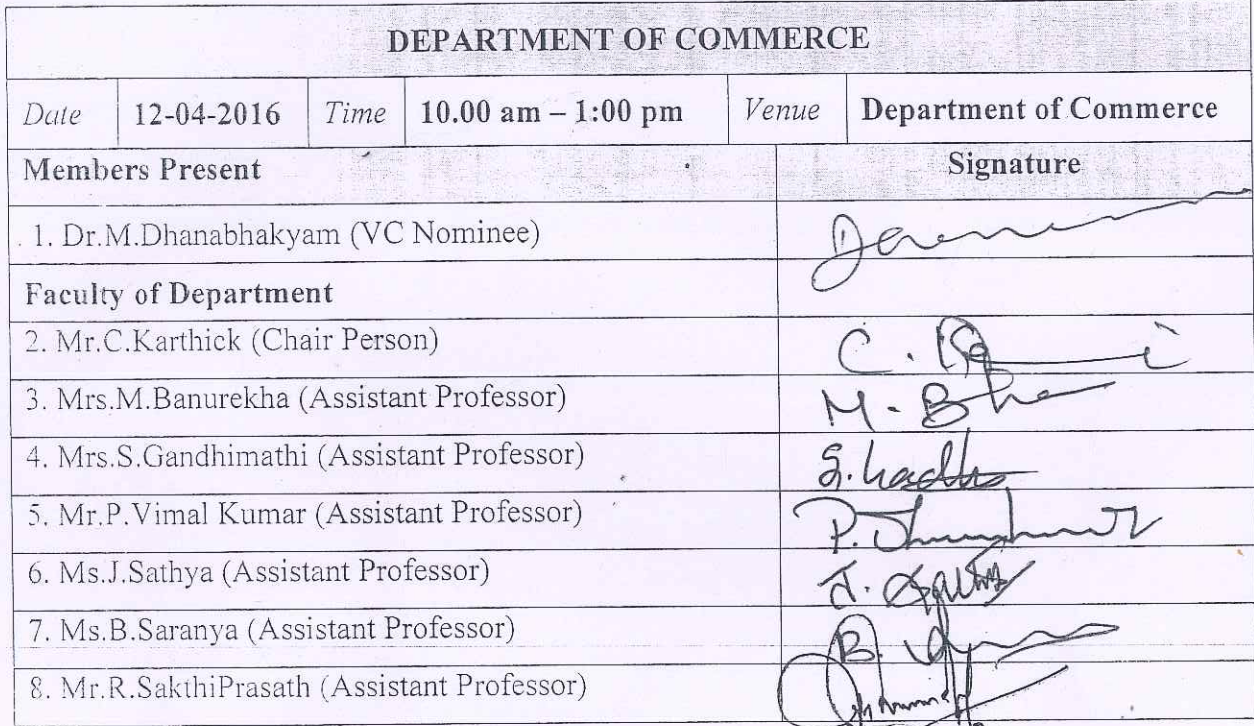 DEPARTMENT OF COMMERCE
Date 12-04-2016 Time 10.00 am – 1:00 pm Venue Department of Commerce
Members Present Signature
1. Dr.M.Dhanabhakyam (VC Nominee)
Faculty of Department
2. Mr.C.Karthick (Chair Person) C.
3. Mrs.M.Banurekha (Assistant Professor) M.
4. Mrs.S.Gandhimathi (Assistant Professor) S.
5. Mr.P.Vimal Kumar (Assistant Professor) P.
6. Ms.J.Sathya (Assistant Professor) J.
7. Ms.B.Saranya (Assistant Professor) B.
8. Mr.R.SakthiPrasath (Assistant Professor)